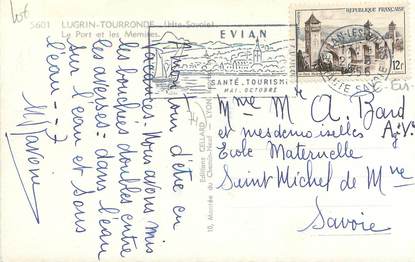 5601 LUGRIN-TOURRONDE (Hte-Savoie)
Le Port et les Memises.
EVIAN
SANTÉ, TOURISME
MAI, OCTOBRE
REPUBLIQUE FRANÇAISE
12F
HAUTE SAVOIE
Editions CELLARD
10, Montée du Chemin-Neuf - LYON
d'être en
vacances. Nous avons mis
les bouchées doubles entre
les averses: dans l'eau
sur l'eau et sous
l'eau - - ?
Mme M A. Bard
et mesdemoiselles
Ecole Maternelle
Saint Michel de Mne
Savoie